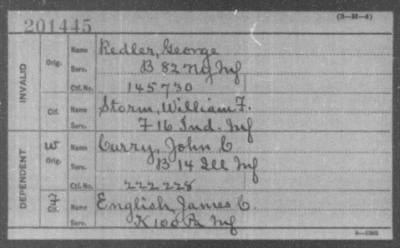 (3-88-6)
201445
INVALID
Orig.
Name Redler, George
Serv. B 82 NY Inf
Ctf. No. 145730
Ctf.
Name Storm, William F.
Serv. F 16 Ind. Inf
DEPENDENT
W
Orig.
Name Curry, John C
Serv. B 14 Ill Inf
Ctf. No. 222228
Ctf.
Name English James C.
Serv. K 100 Pa Inf